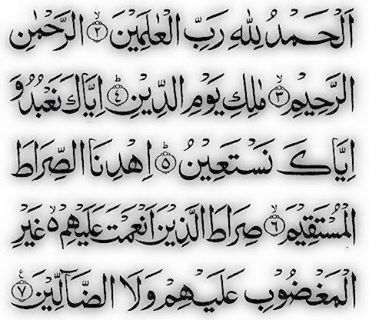 اَلْحَمْدُ لِلّٰهِ رَبِّ الْعٰلَمِيْنَ ۙ﴿۲﴾ الرَّحْمٰنِ
الرَّحِيْمِ ۙ﴿۳﴾ مٰلِكِ يَوْمِ الدِّيْنِ ؕ﴿۴﴾ اِيَّاكَ نَعْبُدُ وَ
اِيَّاكَ نَسْتَعِيْنُ ؕ﴿۵﴾ اِهْدِنَا الصِّرَاطَ
الْمُسْتَقِيْمَ ۙ﴿۶﴾ صِرَاطَ الَّذِيْنَ اَنْعَمْتَ عَلَيْهِمْ ۙ۬ غَيْرِ
الْمَغْضُوْبِ عَلَيْهِمْ وَلَا الضَّآلِّيْنَ ﴿۷﴾